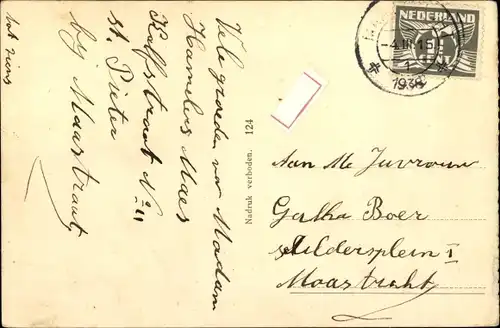 Vele groeten van Madam
Hamelers Maes
Kalfstraat No 11
St. Pieter
bij Maastricht
tot ziens
Nadruk verboden. 124
NEDERLAND
-4.III.15
1936
Aan Me Juvrouw
Gertha Boer
Schildersplein 1
Maastricht